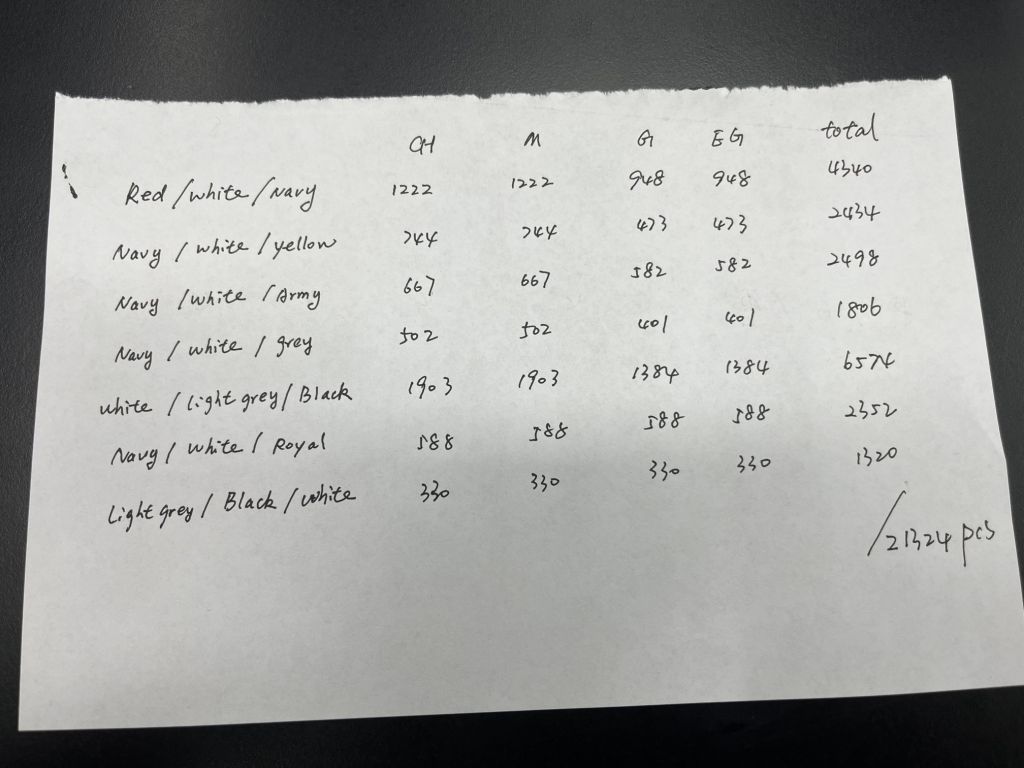 CH M G EG total
Red / white / Navy 1222 1222 948 948 4340
Navy / white / yellow 744 744 473 473 2434
Navy / white / Army 667 667 582 582 2498
Navy / white / grey 502 502 401 401 1806
white / light grey / Black 1903 1903 1384 1384 6574
Navy / white / Royal 588 588 588 588 2352
Light grey / Black / white 330 330 330 330 1320
/21324 pcs